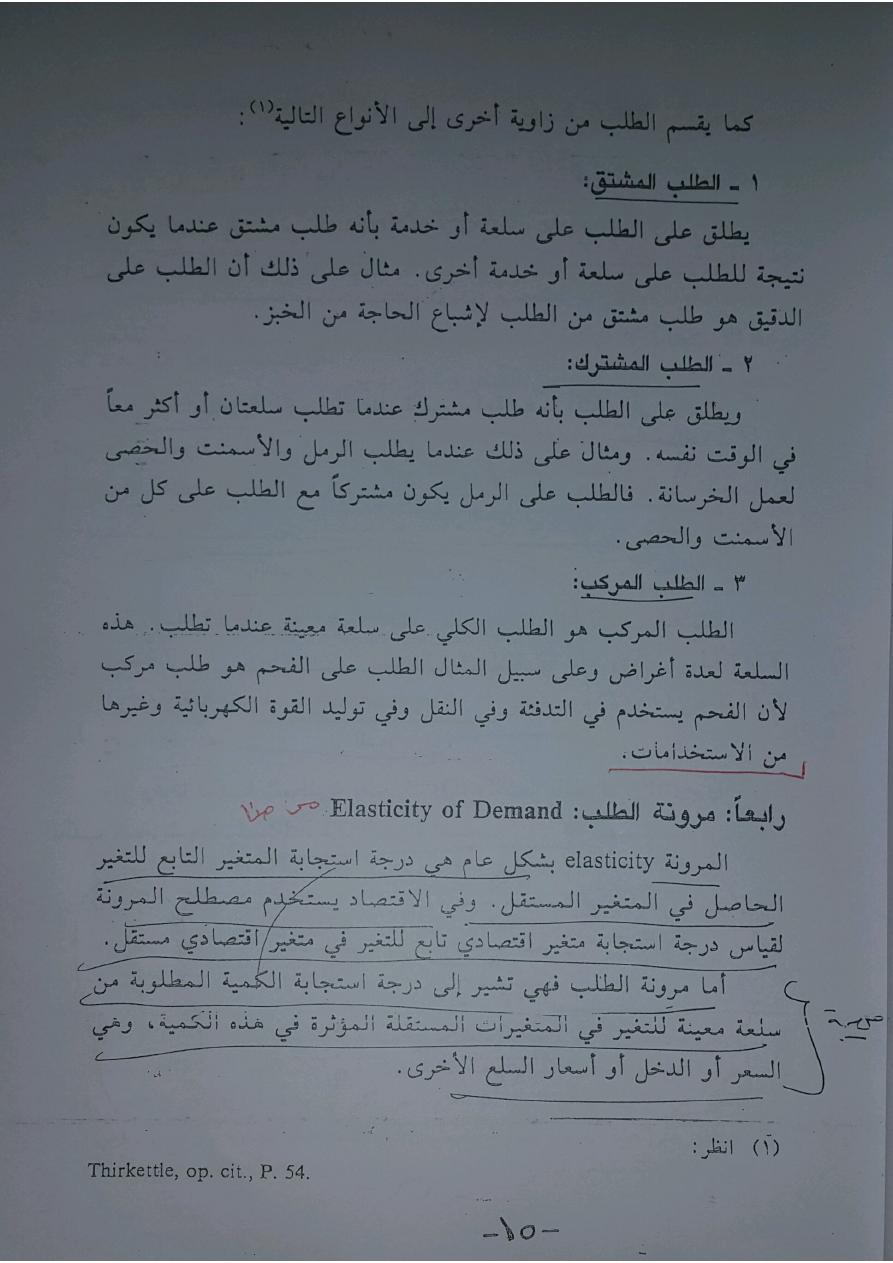 كما يقسم الطلب من زاوية أخرى إلى الأنواع التالية(١):
١ - الطلب المشتق:
يطلق على الطلب على سلعة أو خدمة بأنه طلب مشتق عندما يكون
نتيجة للطلب على سلعة أو خدمة أخرى. مثال على ذلك أن الطلب على
الدقيق هو طلب مشتق من الطلب لإشباع الحاجة من الخبز.
٢ - الطلب المشترك:
ويطلق على الطلب بأنه طلب مشترك عندما تطلب سلعتان أو أكثر معاً
في الوقت نفسه. ومثال على ذلك عندما يطلب الرمل والأسمنت والحصى
لعمل الخرسانة. فالطلب على الرمل يكون مشتركاً مع الطلب على كل من
الأسمنت والحصى.
٣ - الطلب المركب:
الطلب المركب هو الطلب الكلي على سلعة معينة عندما تطلب. هذه
السلعة لعدة أغراض وعلى سبيل المثال الطلب على الفحم هو طلب مركب
لأن الفحم يستخدم في التدفئة وفي النقل وفي توليد القوة الكهربائية وغيرها
من الاستخدامات.
رابعاً: مرونة الطلب: Elasticity of Demand
المرونة elasticity بشكل عام هي درجة استجابة المتغير التابع للتغير
الحاصل في المتغير المستقل. وفي الاقتصاد يستخدم مصطلح المرونة
لقياس درجة استجابة متغير اقتصادي تابع للتغير في متغير اقتصادي مستقل.
أما مرونة الطلب فهي تشير إلى درجة استجابة الكمية المطلوبة من
سلعة معينة للتغير في المتغيرات المستقلة المؤثرة في هذه الكمية، وهي
السعر أو الدخل أو أسعار السلع الأخرى.
(١) انظر:
Thirkettle, op. cit., P. 54.
-١٥-